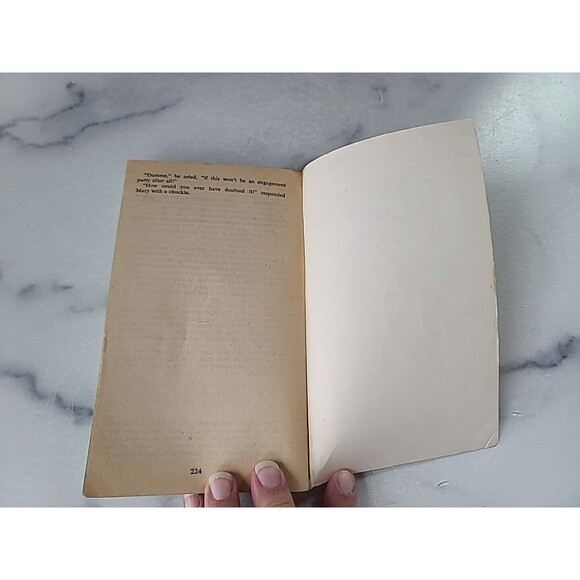 "Damme," he cried, "if this won't be an engagement
party after all!"
"How could you ever have doubted it?" responded
Mary with a chuckle.
224